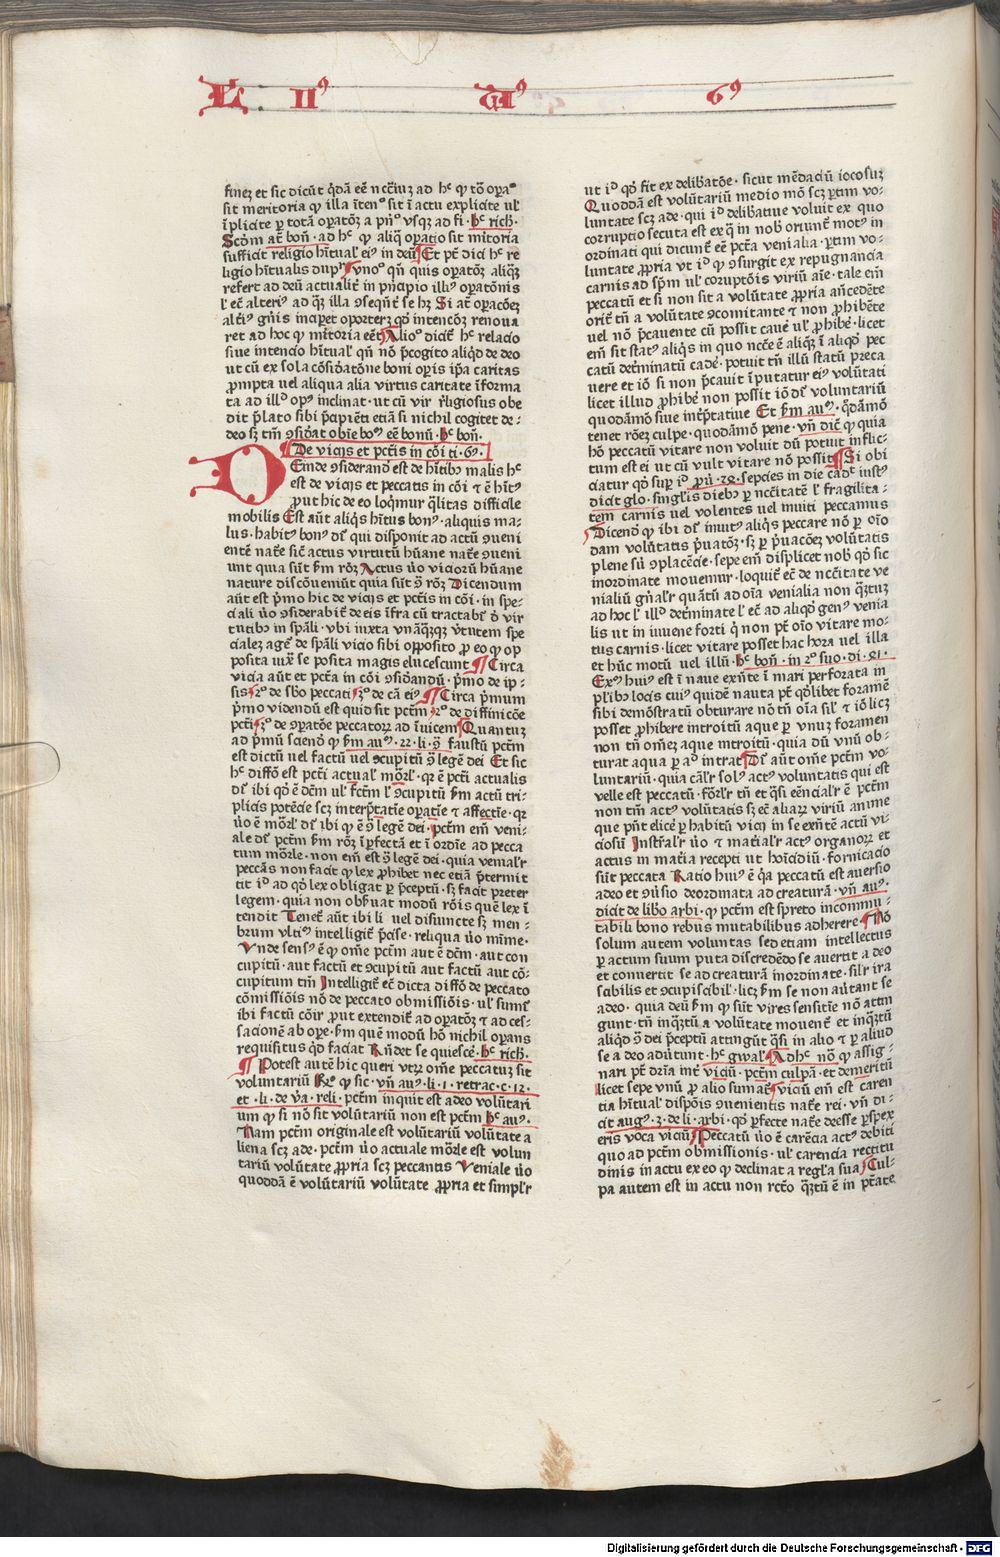 L · IIꝰ Uꝰ 6ꝰ
finez et sic dicūt q̄dā eē nccīuz ad hͨ ꝙ tō oꝑaº
sit meritoria ꝙ illa ītenº sit ī actu explicite ul̓
īplicite ꝑ totā oꝑatōꝫ a pnº vsqꝫ ad fi · hͨ rich̄ ·
Scd̄m at̄ bon̄ · ad hͨ ꝙ aliq̄ oꝑatio sit mr̄toria
sufficit religio hītual̓ eiꝰ in deū Et pt̄ dici hͨ re
ligio hītualis dupr̄ vnoº qn̄ quis oꝑatōꝫ aliq̄ꝫ
refert ad deū actualit̄ in pn̄cipio illiꝰ oꝑatōnis
l̓ ec̄ alteriꝰ ad q̄ꝫ illa ꝯseqn̄t̄ se hꝫ Si at̄ oꝑacōeꝫ
alt̓iꝰ gn̄is inciꝑet oporteꝫ qd̓ intencōꝫ renoua
ret ad hoc ꝙ mr̄toria eēt Alioº dicit̄ hͨ relacio
siue intencio hītual̓ qn̄ nō p̄cogito aliq̓d de deo
ut cū ex sola cōsid̓atōne boni oꝑis ip̄a caritas
ꝓmpta uel aliqua alia virtus caritate īforma
ta ad illd̓ opꝰ inclinat · ut cū vir rl̓igiosus obe
dit p̄lato sibi p̄apiēt etiā si nichil cogitet de-
deo sꝫ tm̄ ꝯsid̓at obīe boꝰ eē bonū · hͨ bon̄ ·
De vicijs et pctīs in cōi ti · 6ꝰ ·
DEinde ꝯsiderand̓ est de hītibꝰ malis hͨ
est de vicijs et peccatis in cōi ⁊ ē hītꝰ
ꝓut hic de eo loq̄mur q̄litas difficile
mobilis Est aūt aliq̓s hītus bonꝰ · aliquis ma-
lus · habitꝰ bonꝰ dr̄ qui disponit ad actū ꝯueni
entē nat̄e sic̄ actus virtutū hūane nat̄e ꝯueni
unt quia sūt ẜm rōꝫ Actus ūo vicioꝝ hūane
nature discōueniūt quia sūt ꝯ̄ rōꝫ Dicendum
aūt est p̄mo hic de vicijs et pctīs in cōi · in spe-
ciali ūo ꝯsiderabit̄ de eis īfra cū tractabit̄ d̓ vir
tutibꝰ in sp̄ali · vbi iuxta vnāq̄ꝫqꝫ v̓tutem spe
cialeꝫ aget̄ de sp̄ali vicio sibi opposito ꝓ eo ꝙ op
posita iux̄ se posita magis elucescunt ¶ Circa
vicia aūt et pctā in cōi ꝯsid̓andū · p̄mo de ip-
sis 2º de sb̄o peccati 3º de cā eiꝰ ¶ Circa p̄mum
p̄mo videndū est quid sit pctm̄ 2º de diffinicōe
pcti 3º de ꝯꝑatōe peccatoꝝ ad īuicem Quantuꝫ
ad p̄mū sciend̓ ꝙ ẜm auꝰ · 22 · li · ꝯ̄ faustū pctm̄
est dictū uel factū uel ꝯcupitū ꝯ̄ legē dei Et sic
hͨ diffō est pcti actual̓ mōr̄l · qr ē pcti actualis
dr̄ ibi qd̓ ē dc̄m ul̓ fc̄m l̓ ꝯcupitū ẜm actū tri-
plicis potēcie scꝫ interp̄tatīe oꝑatīe ⁊ affectīe · qr
ūo ē mōr̄l dr̄ ibi ꝙ ē ꝯ̄ legē dei · pctm̄ em̄ veni-
ale dr̄ pctm̄ ẜm rōꝫ īꝑfectā et ī ordīe ad pecca
tum mōr̄le · non em̄ est ꝯ̄ legē dei · quia venial̓r
peccās non facit ꝙ lex ꝓhibet nec etiā p̄termit
tit id̓ ad qd̓ lex obligat ꝑ p̄ceptū · sꝫ facit preter
legem · quia non obẜuat modū rōis quē lex ī
tendit Tenet̄ aūt ibi li uel disiuncte sꝫ mem-
brum vltīꝰ intelligit̄ p̄cise · reliqua ūo mīme ·
Vnde sensꝰ ē ꝙ om̄e pctm̄ aut ē dc̄m · aut con
cupitū · aut factū et ꝯcupitū aut factū aut cō-
cupitum tm̄ Intelligit̄ eē dicta diffō de peccato
cōmissiōis nō de peccato obmissiōis · ul̓ sumit̄
ibi factū cōir̄ ꝓut extendit̄ ad oꝑatōꝫ ⁊ ad ces-
sacionē ab oꝑe · ẜm quē modū hō nichil oꝑans
requisitus q̓d faciat Rn̄det se quiescē · hͨ rich̄ ·
¶ Potest autē hic queri vtꝝ om̄e peccatuꝫ sit
voluntariū Rº ꝙ sic · vn̄ auꝰ · li · 1 · retrac · c · 12 ·
et · li · de v̓a · reli · pctm̄ inquit est adeo volūtari
um ꝙ si nō sit volūtariū non est pctm̄ hͨ auꝰ ·
Nam pctm̄ originale est volūtariū volūtate a
liena scꝫ ade · pctm̄ ūo actuale mōr̄le est volun
tariū volūtate ꝓpria scꝫ peccantis Veniale ūo
quoddā ē volūtariū volūtate ꝓpria et simpl̓r
ut id̓ qd̓ fit ex delib̓atōe · sicut mēdaciū iocosuꝫ
Quoddā est volūtariū medio mō scꝫ ꝑtim vo-
luntate scꝫ ade · qui id̓ delib̓atiue voluit ex quo
corruptio secuta est ex q̄ in nob̓ oriunt̄ motꝰ in
ordinati qui dicunt̄ eē pctā venialia · ꝑtim vo-
luntate ꝓpria vt id̓ ꝙ ꝯsurgit ex repugnancia
carnis ad sp̄m ul̓ coruptōis viriū aīe · tale em̄
peccatū et si non sit a volūtate ꝓpria an̄cedēte
orit̄ tn̄ a volūtate ꝯcomitante ⁊ non ꝓhibēte
uel nō p̄cauente cū possit cauē ul̓ ꝓhibē · licet
em̄ sit statꝰ aliq̓s in quo ncc̄e ē aliq̄ꝫ ī aliqd̓ pec
catū det̓minatū cadē · potuit tn̄ illū statū preca
uere et iō si non p̄cauit īputatur eiꝰ volūtati
licet illud ꝓhibē non possit iō dr̄ voluntariū
quodāmō siue int̓p̄tatiue Et ẜm auꝰ · q̄dāmō
tenet rōeꝫ culpe · quodāmō pene · vn̄ dic̄ ꝙ quia
hō peccatū vitare non voluit dū potuit inflic-
tum est ei ut cū vult vitare nō possit ¶ Si obi
ciatur qd̓ suꝑ id̓ ꝓū · 24 · sepcies in die cadet iustꝰ
dicit glo · singl̓is diebꝰ ꝑ nccītatē l̓ fragilita-
tem carnis uel volentes uel inuiti peccamus
Dicend̓ ꝙ ibi dr̄ inuitꝰ aliq̓s peccare nō ꝑ oīo
dam volūtatis p̄uatōꝫ · sꝫ ꝑ p̄uacōeꝫ volūtatis
plene sū ꝯplacēcie · sepe em̄ displicet nob̓ qd̓ sic
inordinate mouemur · loquit̄ eē de nccītate ve
nialiū gn̄al̓r quātū ad oīa venialia non q̄ꝫtuꝫ
ad hoc l̓ illd̓ det̓minate l̓ eē ad aliqd̓ genꝰ venia
lis ut in iuuene forti q̓ non pt̄ oīo vitare mo-
tus carnis · licet vitare posset hac hora uel illa
et hūc motū uel illū · hͨ bon̄ · in 2º suo · di · 41 ·
Exꝰ huiꝰ est ī naue exn̄te ī mari perforata in
pl̓ibꝰ locis cuiꝰ quidē nauta pt̄ qd̓libet foramē
sibi demōstratū obturare nō tn̄ oīa sil̓ ⁊ iō licꝫ
posset ꝓhibere introitū aque ꝑ vnuꝫ foramen
non tn̄ om̄eꝫ aque introitū · quia dū vnū ob-
turat aqua ꝑ ad intrat Dr̄ aūt om̄e pctm̄ vo-
luntariū · quia cāl̓r solꝰ actꝰ voluntatis qui est
velle est peccatū · fōr̄l̓r tn̄ et q̓si eēncial̓r ē pctm̄
non tm̄ actꝰ volūtatis sꝫ ec̄ aliaꝝ viriū anime
que pn̄t elicē ꝑ habitū vicij in se exn̄tē actū vi-
ciosū Instr̄al̓r ūo ⁊ mat̓ial̓r actꝰ organoꝝ et
actus in mat̓ia recepti ut hoīcidiū · fornicacio
sūt peccata Ratio huiꝰ ē q̓a peccatū est auersio
adeo et ꝯuersio deordinata ad creaturā · vn̄ auꝰ ·
dicit de lib̓o arbi · ꝙ pctm̄ est spreto incommu-
tabili bono rebus mutabilibus adherere ¶ Nō
solum autem voluntas sed etiam intellectus
ꝑ actum suum puta discredēdo se auertit a deo
et conuertit se ad creaturā inordinate · sil̓r ira
scibilis et ꝯcupiscibil̓ · licꝫ ẜm se non aūtant se
adeo · quia deū ẜm ꝙ sūt vires sensitīe nō attin
gunt · tn̄ inq̄ꝫtū a volūtate mouent̄ et inq̄ꝫtū
aliqd̓ ꝯ̄ dei p̄ceptū attingūt q̓si in alio ⁊ ꝑ aliud
se a deo aūtunt · hͨ gwal̓ ¶ Ad hͨ nō ꝙ assig-
nari pt̄ dr̄ia int̓ viciū · pctm̄ culpā · et demeritū
licet sepe vnū ꝓ alio sumat̄ viciū em̄ est caren
tia hītual̓ dispōis ꝯuenientis nat̄e rei · vn̄ di-
cit augꝰ · 3 · de li · arbi · qd̓ ꝑfecte nat̄e deesse ꝑspex
eris voca viciū Peccatū ūo ē carēcia actꝰ debiti
quo ad pctm̄ obmissionis · ul̓ carencia rectitu
dinis in actu ex eo ꝙ declinat a regl̓a sua Cul-
pa autem est in actu non rct̄o q̄ꝫtū ē in pt̄ate
Digitalisierung gefördert durch die Deutsche Forschungsgemeinschaft · DFG